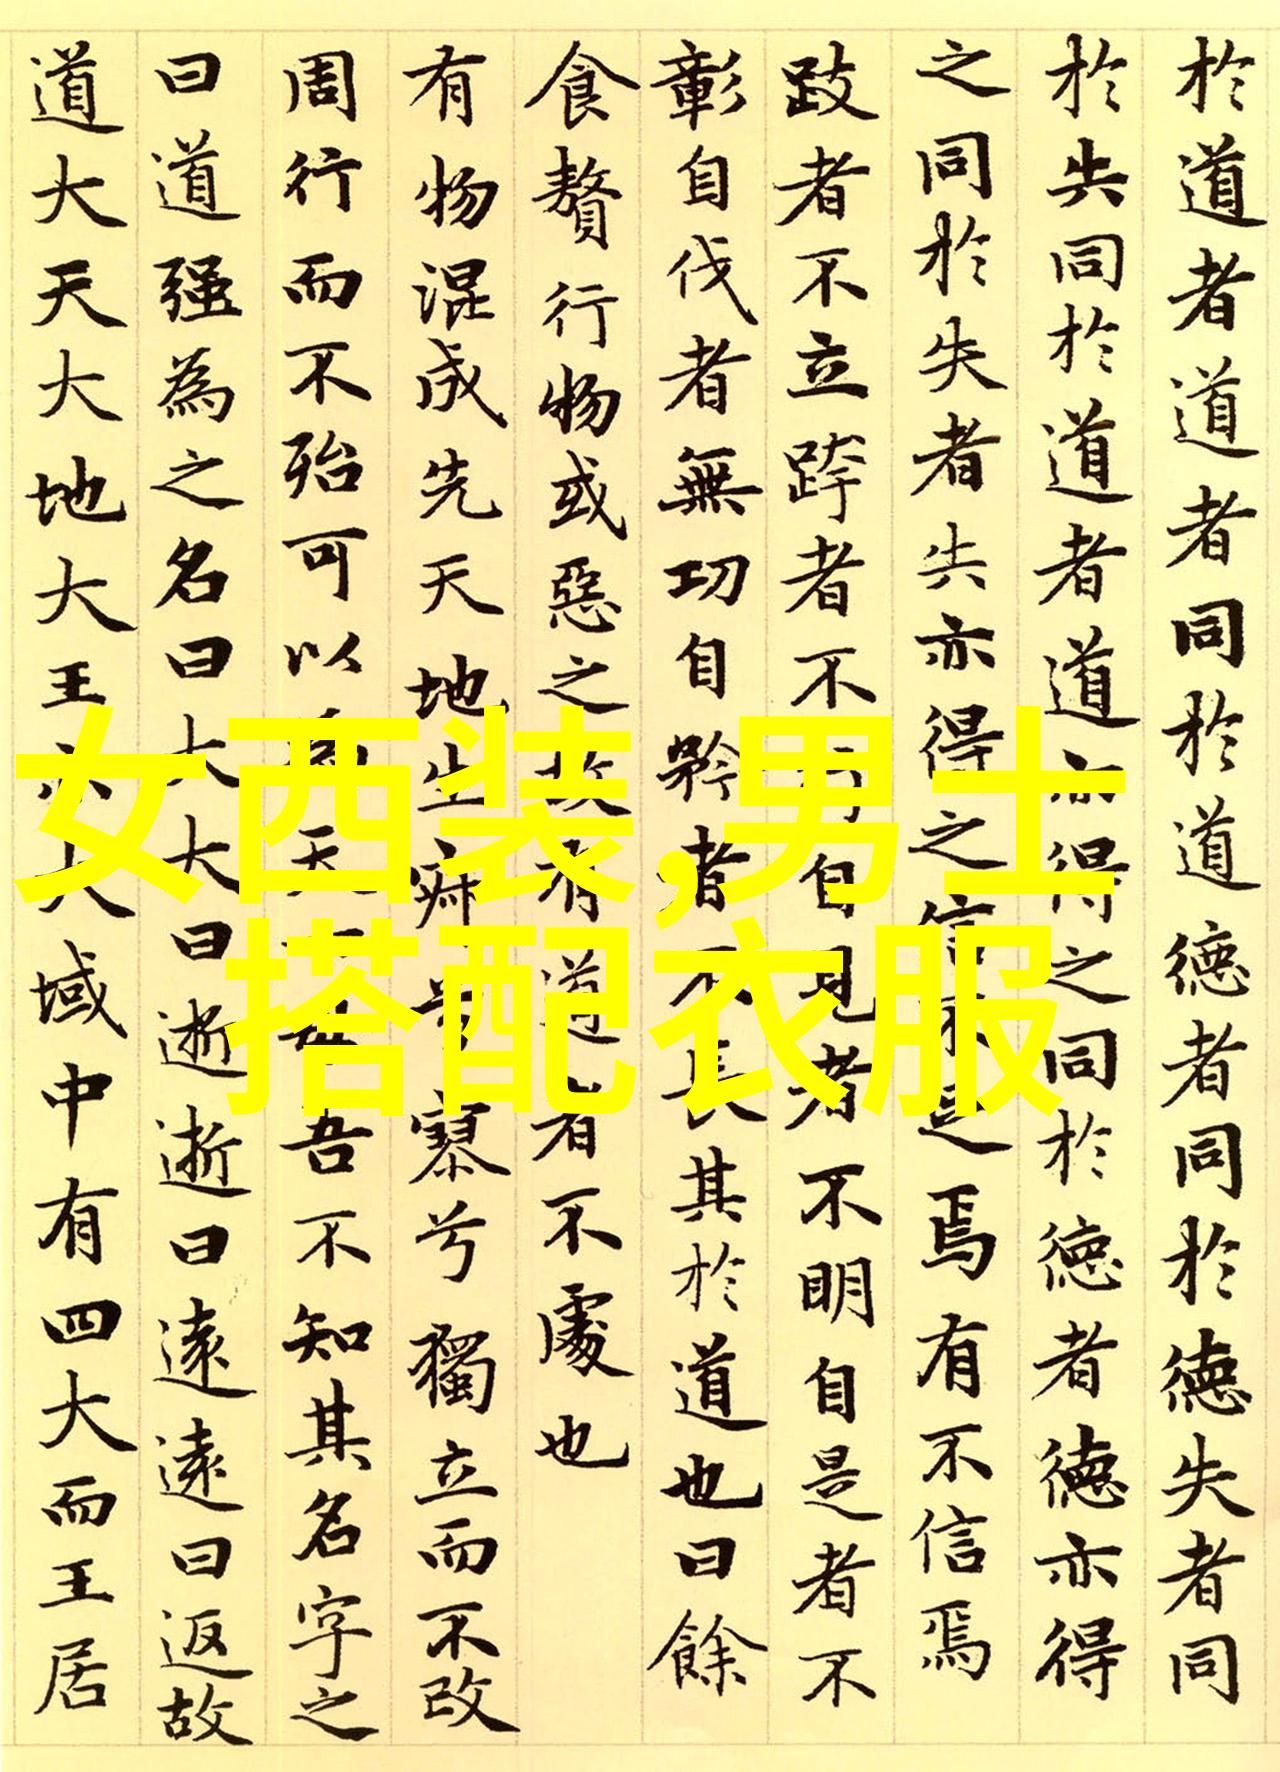 於道者道者同於道德者同於德失者同
於失同於道者道亦得之同於德者德亦得
之同於失者失亦得之信不足焉有不信焉
跂者不立跨者不行自見者不明自是者不
彰自伐者無功自矜者不長其於道也曰餘
食贅行物或惡之故有道者不處也
有物混成先天地生寂兮寥兮獨立而不改
周行而不殆可以為天下母吾不知其名字之
曰道强為之名曰大大曰逝逝曰遠遠曰返故
道大天大地大王亦大域中有四大而王居
女西装,男士
搭配衣服